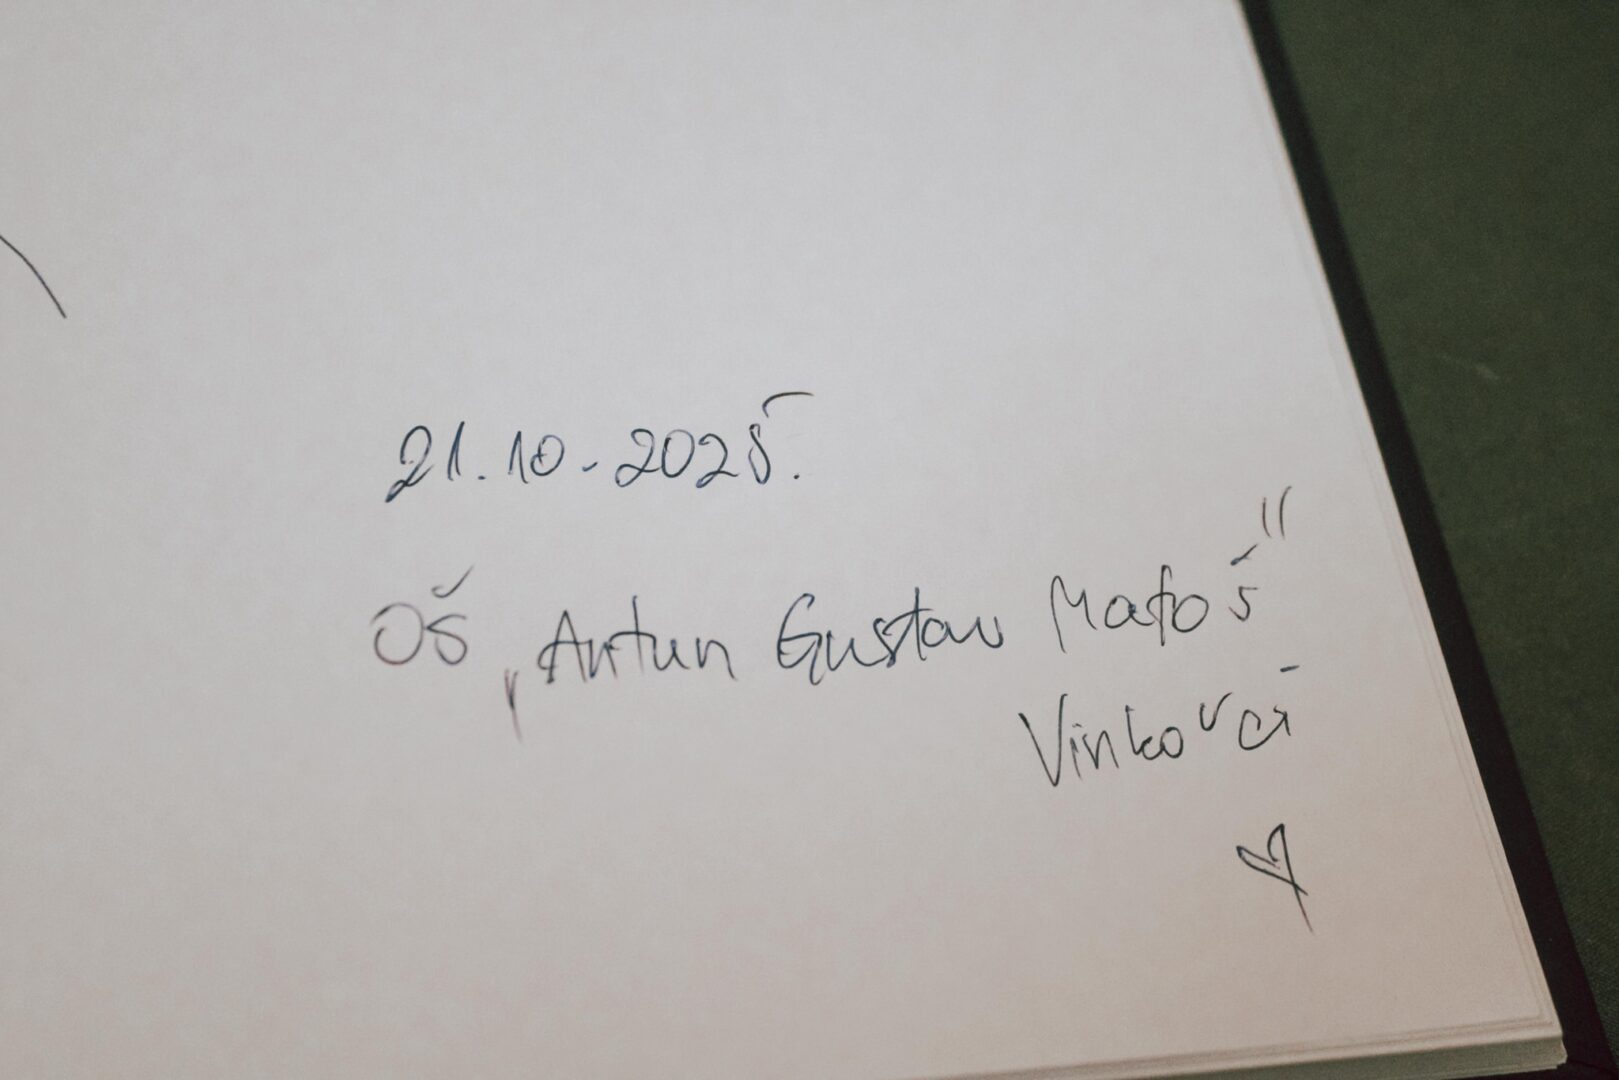 21.10.2025.
OŠ „Antun Gustav Matoš"
Vinkovci